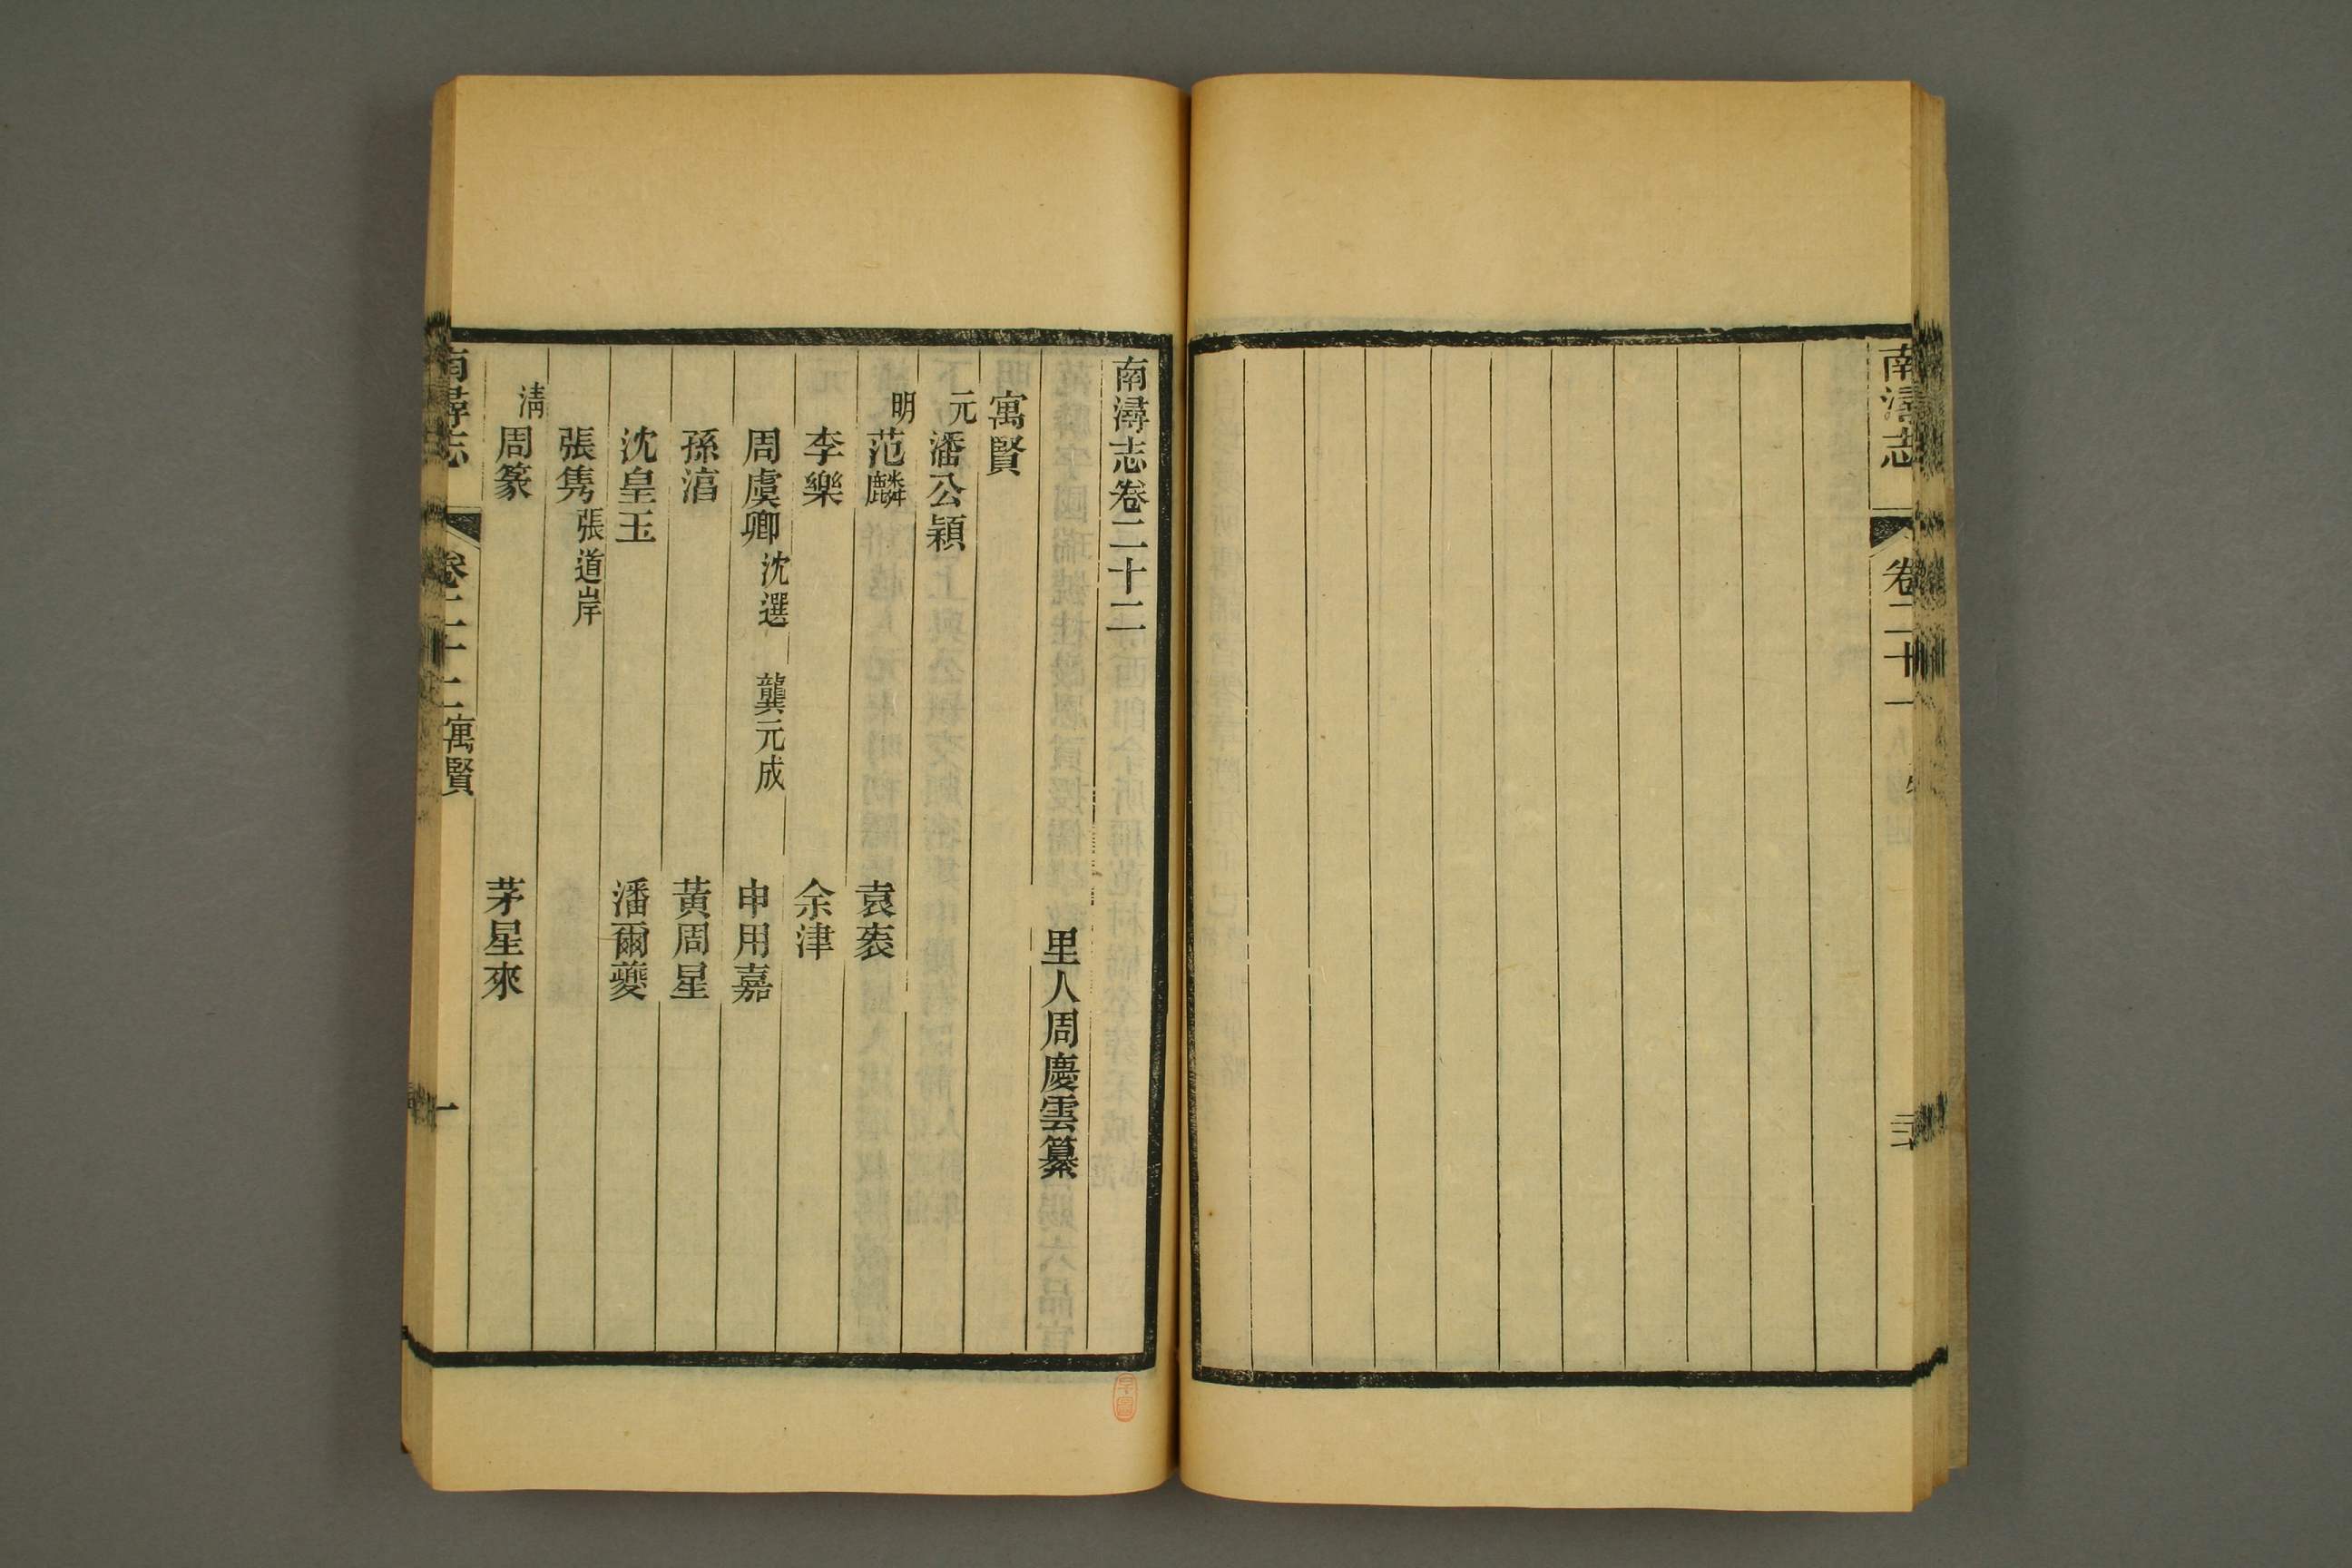 南潯志
卷二十一
南潯志卷二十二
里人周慶雲纂
寓賢
元
潘公穎
明
范麟
袁袠
李樂
余津
周虞卿
沈選
龔元成
申用嘉
孫湻
黃周星
沈皇玉
潘爾夔
張雋
張道岸
清
周篆
茅星來
南潯志
卷二十二
寓賢
一